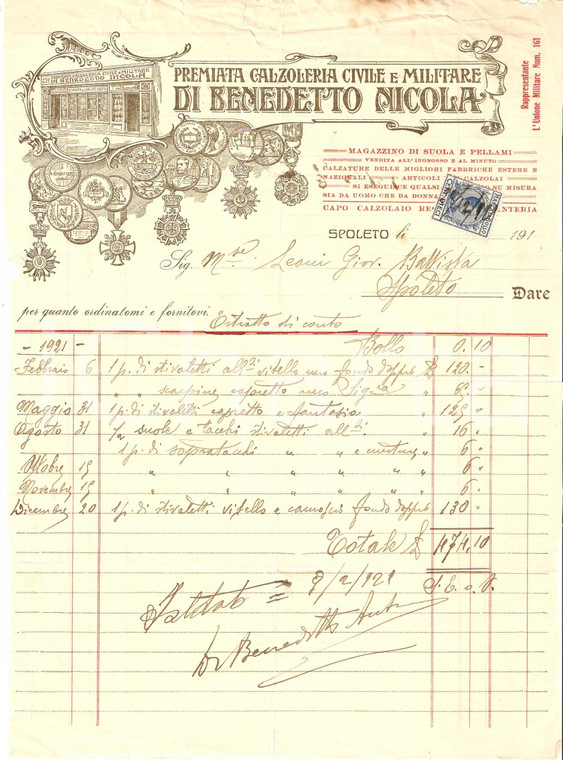 CALZOLERIA CIVILE E MILITARE
DI BENEDETTO NICOLA
PREMIATA CALZOLERIA CIVILE E MILITARE
DI BENEDETTO NICOLA
Rappresentante
L'Unione Militare Num. 161
MAGAZZINO DI SUOLA E PELLAMI
VENDITA ALL'INGROSSO E AL MINUTO
CALZATURE DELLE MIGLIORI FABBRICHE ESTERE E
NAZIONALI ARTICOLI CALZOLAI
SI ESEGUISCE QUALSI SU MISURA
SIA DA UOMO CHE DA DONNA
CAPO CALZOLAIO
SPOLETO li 191
Sig. Leoni Giov. Battista
Spoleto Dare
per quanto ordinatomi e fornitovi.
Estratto di conto
- 1921 - Bollo 0.10
Febbraio 6 1 p. di stivaletti all.ri vitello nero fondo doppio £ 120 -
" " scarpine capretto nero Sig.ra "
Maggio 31 1 p. di stivaletti capretto e fantasia " 125 "
Agosto 31 1/2 suole e tacchi stivaletti all.ri " 16 "
1 p. di sopratacchi " " e " 6 "
Ottobre 15 " " " " " " 6 "
Novembre 15 " " " " " " 6 "
Dicembre 20 1 p. di stivaletti vitello e camoscio fondo doppio 130 "
Totale £ 474.10
S. E. o O.
Saldato = 9/2/922
Di Benedetto